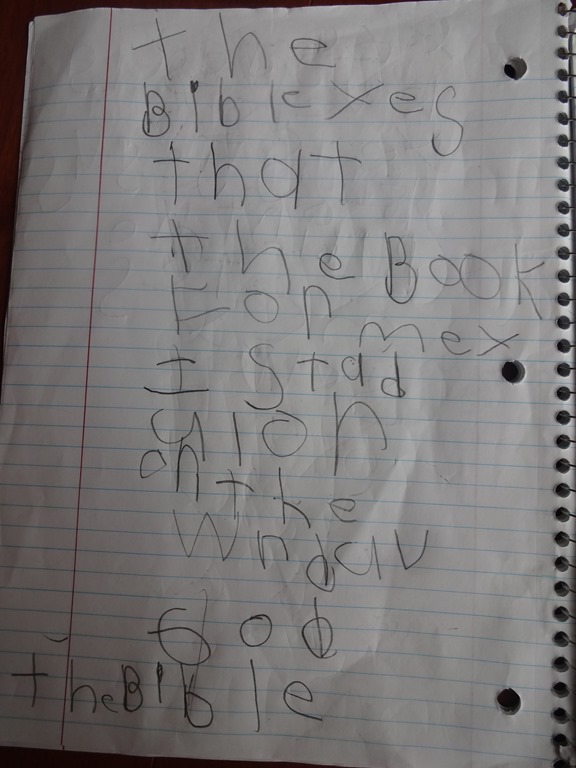 the
Bible yes
that
the Book
Fon
mex
I stad
alon
on the
Wnd
God
the Bible